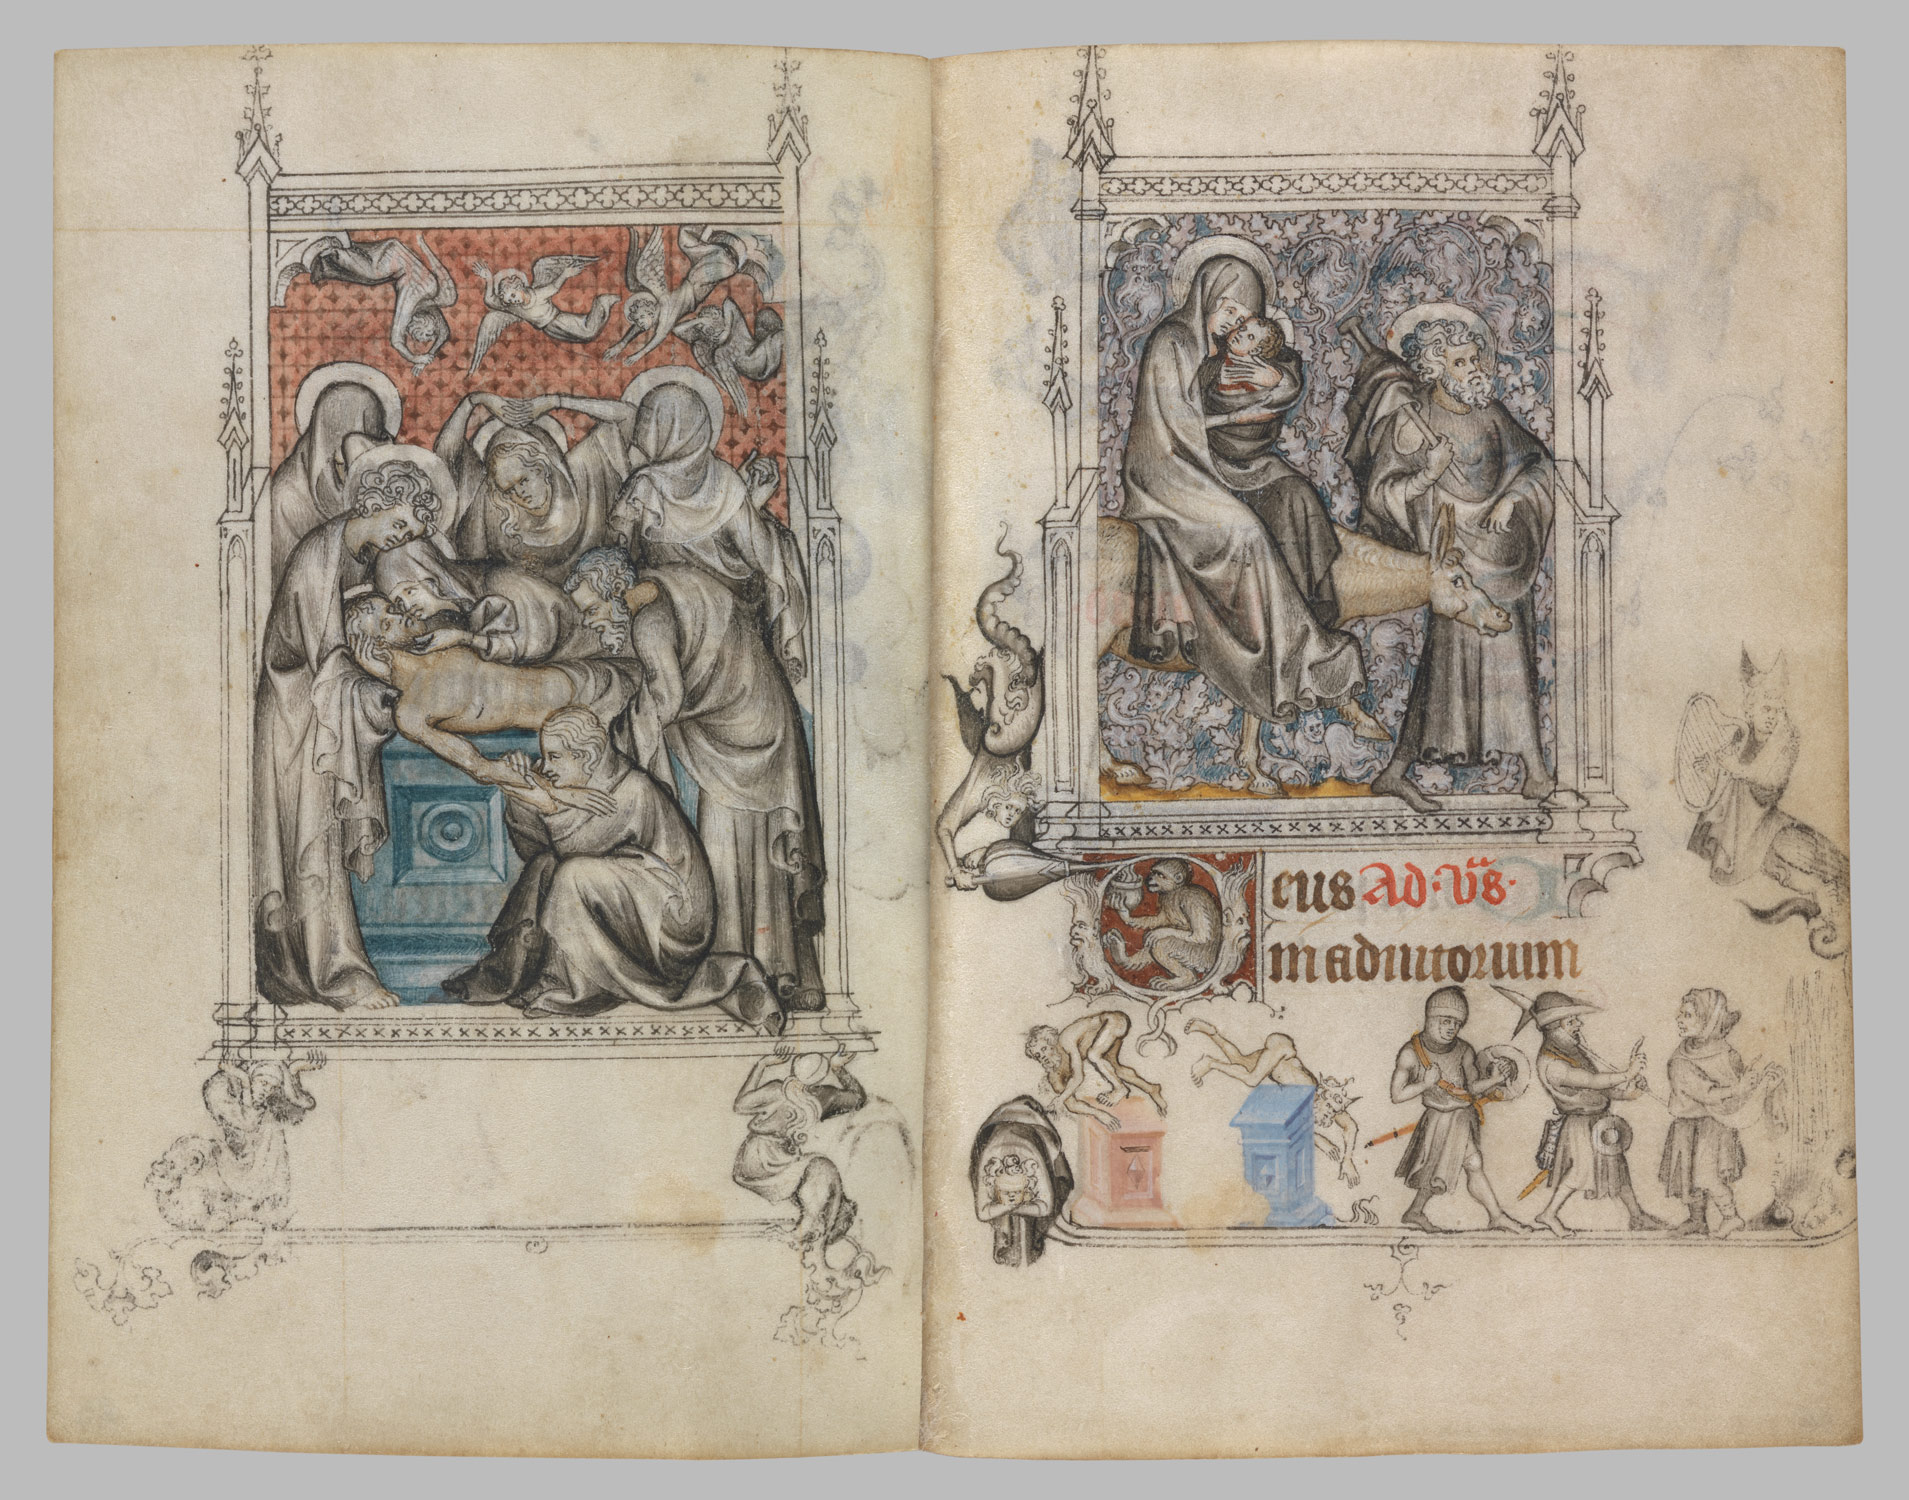 eus Ad·vs̄·
m adiutorium